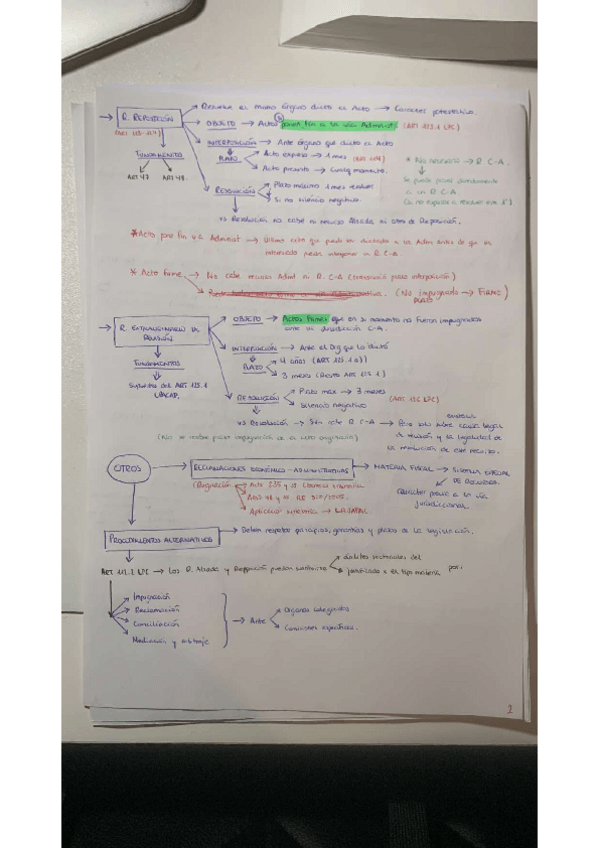 Resuelve el mismo órgano dictó el Acto → Carácter potestativo.
→ R. REPOSICIÓN
(ART 123-124)
OBJETO → Actos ponen fin a la vía Administ. (ART 123.1 LPC)
INTERPOSICIÓN → Ante órgano que dictó el Acto
PLAZO
Acto expreso → 1 mes (ART 124)
Acto presunto → Cualq. momento.
FUNDAMENTO
ART 47 ART 48
* No necesario → R. C-A.
Se puede poner directamente
a un R C-A
RESOLUCIÓN
Plazo máximo 1 mes
Si no silencio negativo.
vs Resolución no cabe ni recurso Alzada ni otro de Reposición.
* Acto pone fin vía Administ → Último acto que puede ser dictado x la Adm antes de que el
interesado pueda interponer un R C-A.
* Acto firme → No cabe recurso Adm ni R. C-A (transcurrió plazo interposición)
(No impugnado → FIRME)
PLAZO
→ R. EXTRAORDINARIO DE
REVISIÓN
OBJETO → Actos firmes que en su momento no fueron impugnados
ante la jurisdicción C-A.
INTERPOSICIÓN → Ante el Org que lo dictó
PLAZO
4 años (ART 125.1 a))
3 meses (Resto ART 125.1)
FUNDAMENTOS
Supuestos del ART 125.1
LPACAP.
RESOLUCIÓN
Plazo max → 3 meses
Silencio negativo
(ART 126 LPC)
vs Resolución → Sólo cabe R C-A → Pero solo sobre causa legal
de revisión y la legalidad de
la resolución de este recurso.
OTROS
RECLAMACIONES ECONÓMICO-ADMINISTRATIVAS → MATERIA FISCAL → SISTEMA ESPECIAL
DE RECURSOS.
(Regulación
Aplicación supletoria → LPACAP)
Carácter previo a la vía
jurisdiccional.
PROCEDIMIENTOS ALTERNATIVOS → Deben respetar principios, garantías y plazos de la legislación.
ART 112.2 LPC → Los R. Alzada y Reposición pueden sustituirse
ámbitos sectoriales del
justificado x el tipo materia por:
Impugnación
Reclamación
Conciliación
Mediación y arbitraje
→ Ante
Órganos colegiados
Comisiones específicas.
2